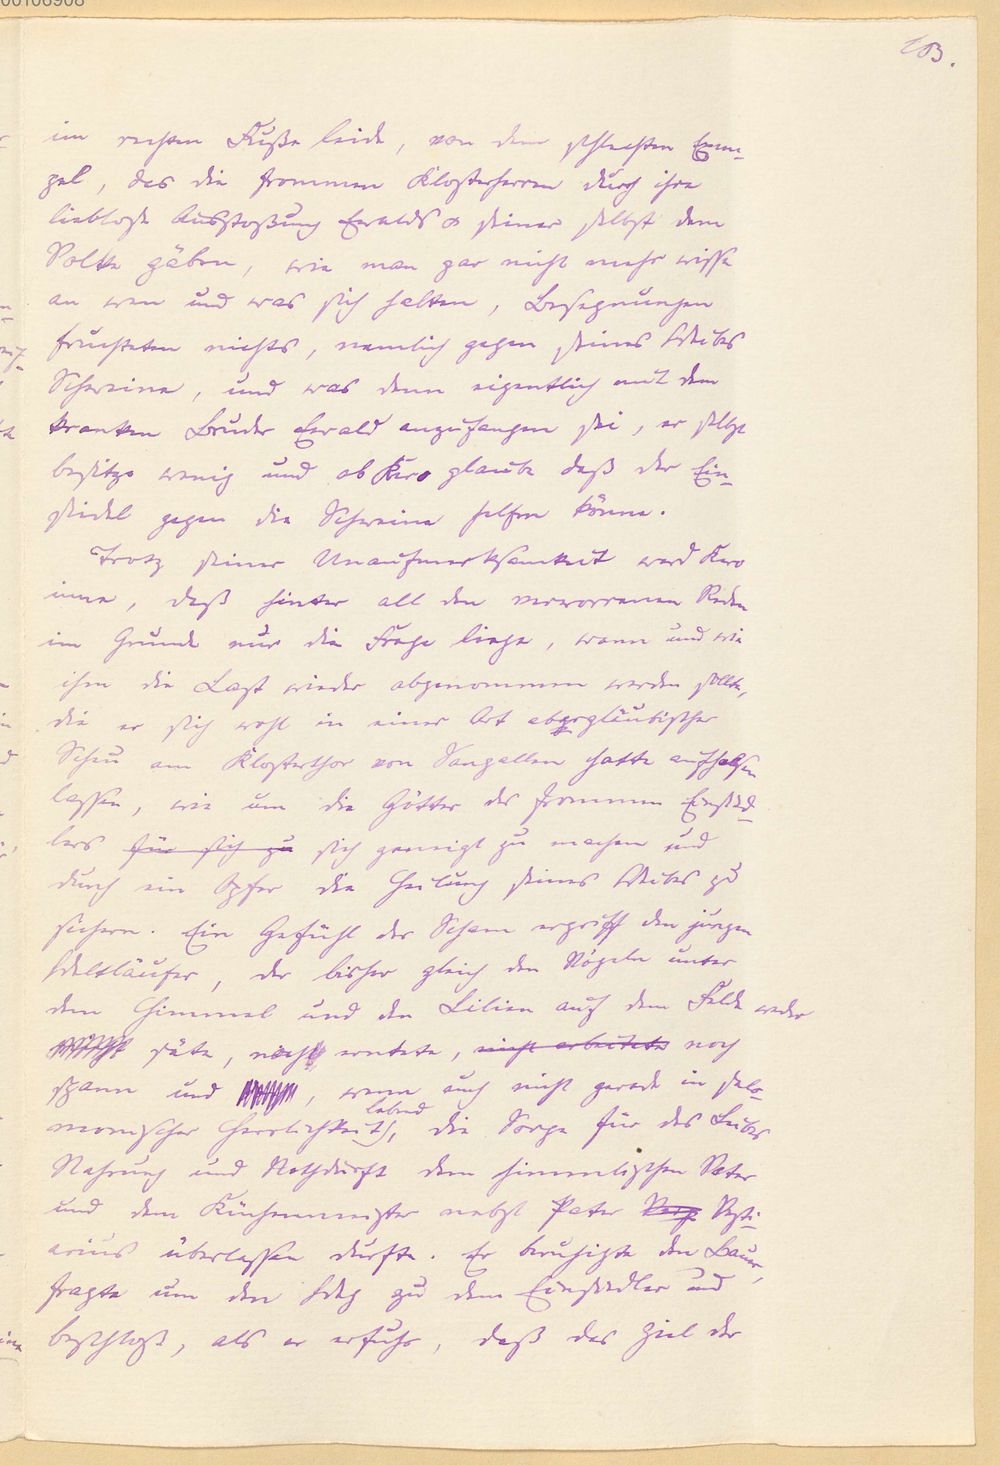 00106908
103.
im rechten Fuße leide, von dem schlechten Exem-
pel, das die frommen Klosterherren durch ihre
lieblose Ausstoßung Ewalds seiner selbst dem
Volke gäben, wie man gar nicht mehr wisse
an wen und was sich halten, Besegnungen
fruchteten nichts, nemlich gegen seines Weibes
Schweine, und was denn eigentlich mit dem
kranken Bruder Ewald anzufangen sei, er selbst
besitze wenig und ob Kero glaube daß der Ein-
siedel gegen die Schweine helfen könne.
Trotz seiner Unaufmerksamkeit ward Kero
inne, daß hinter all den verworrenen Reden
im Grunde nur die Frage liege, wann und wie
ihm die Last wieder abgenommen werden sollte,
die er sich wohl in einer Art abergläubischer
Scheu am Klosterthor von Sangallen hatte aufhalsen
lassen, wie um die Götter des frommen Einsied-
lers für sich zu sich geneigt zu machen und
durch ein Opfer die Heilung seines Weibes zu
sichern. Ein Gefühl der Scham ergriff den jungen
Weltläufer, der bisher gleich den Vögeln unter
dem Himmel und den Lilien auf dem Felde weder
säte, noch erntete, nicht arbeitete noch
spann und, wenn auch nicht gerade in salo-
monischer Herrlichkeit lebend, die Sorge für des Leibes
Nahrung und Nothdurft dem himmlischen Vater
und dem Küchenmeister nebst Pater Vesti-
arius überlassen durfte. Er beruhigte den Bauer,
fragte um den Weg zu dem Einsiedler und
beschloß, als er erfuhr, daß das Ziel der